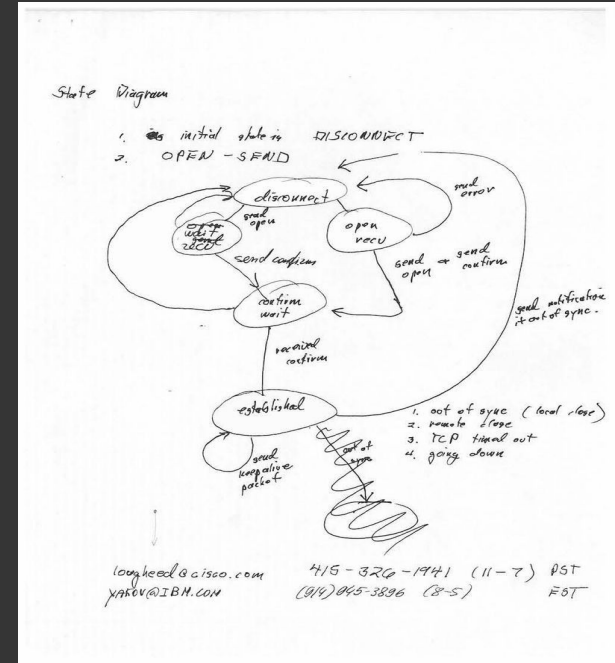 State Diagram
1. initial state is DISCONNECT
2. OPEN - SEND
disconnect
send error
send open
open
wait
recv
open
recv
send confirm
send open & send confirm
confirm
wait
send notification
if out of sync.
received
confirm
established
1. out of sync (local close)
2. remote close
3. TCP timed out
4. going down
out of
sync
send
keepalive
packet
lougheed@cisco.com 415-326-1941 (11-7) PST
YAKOV@IBM.COM (914) 945-3896 (8-5) EST